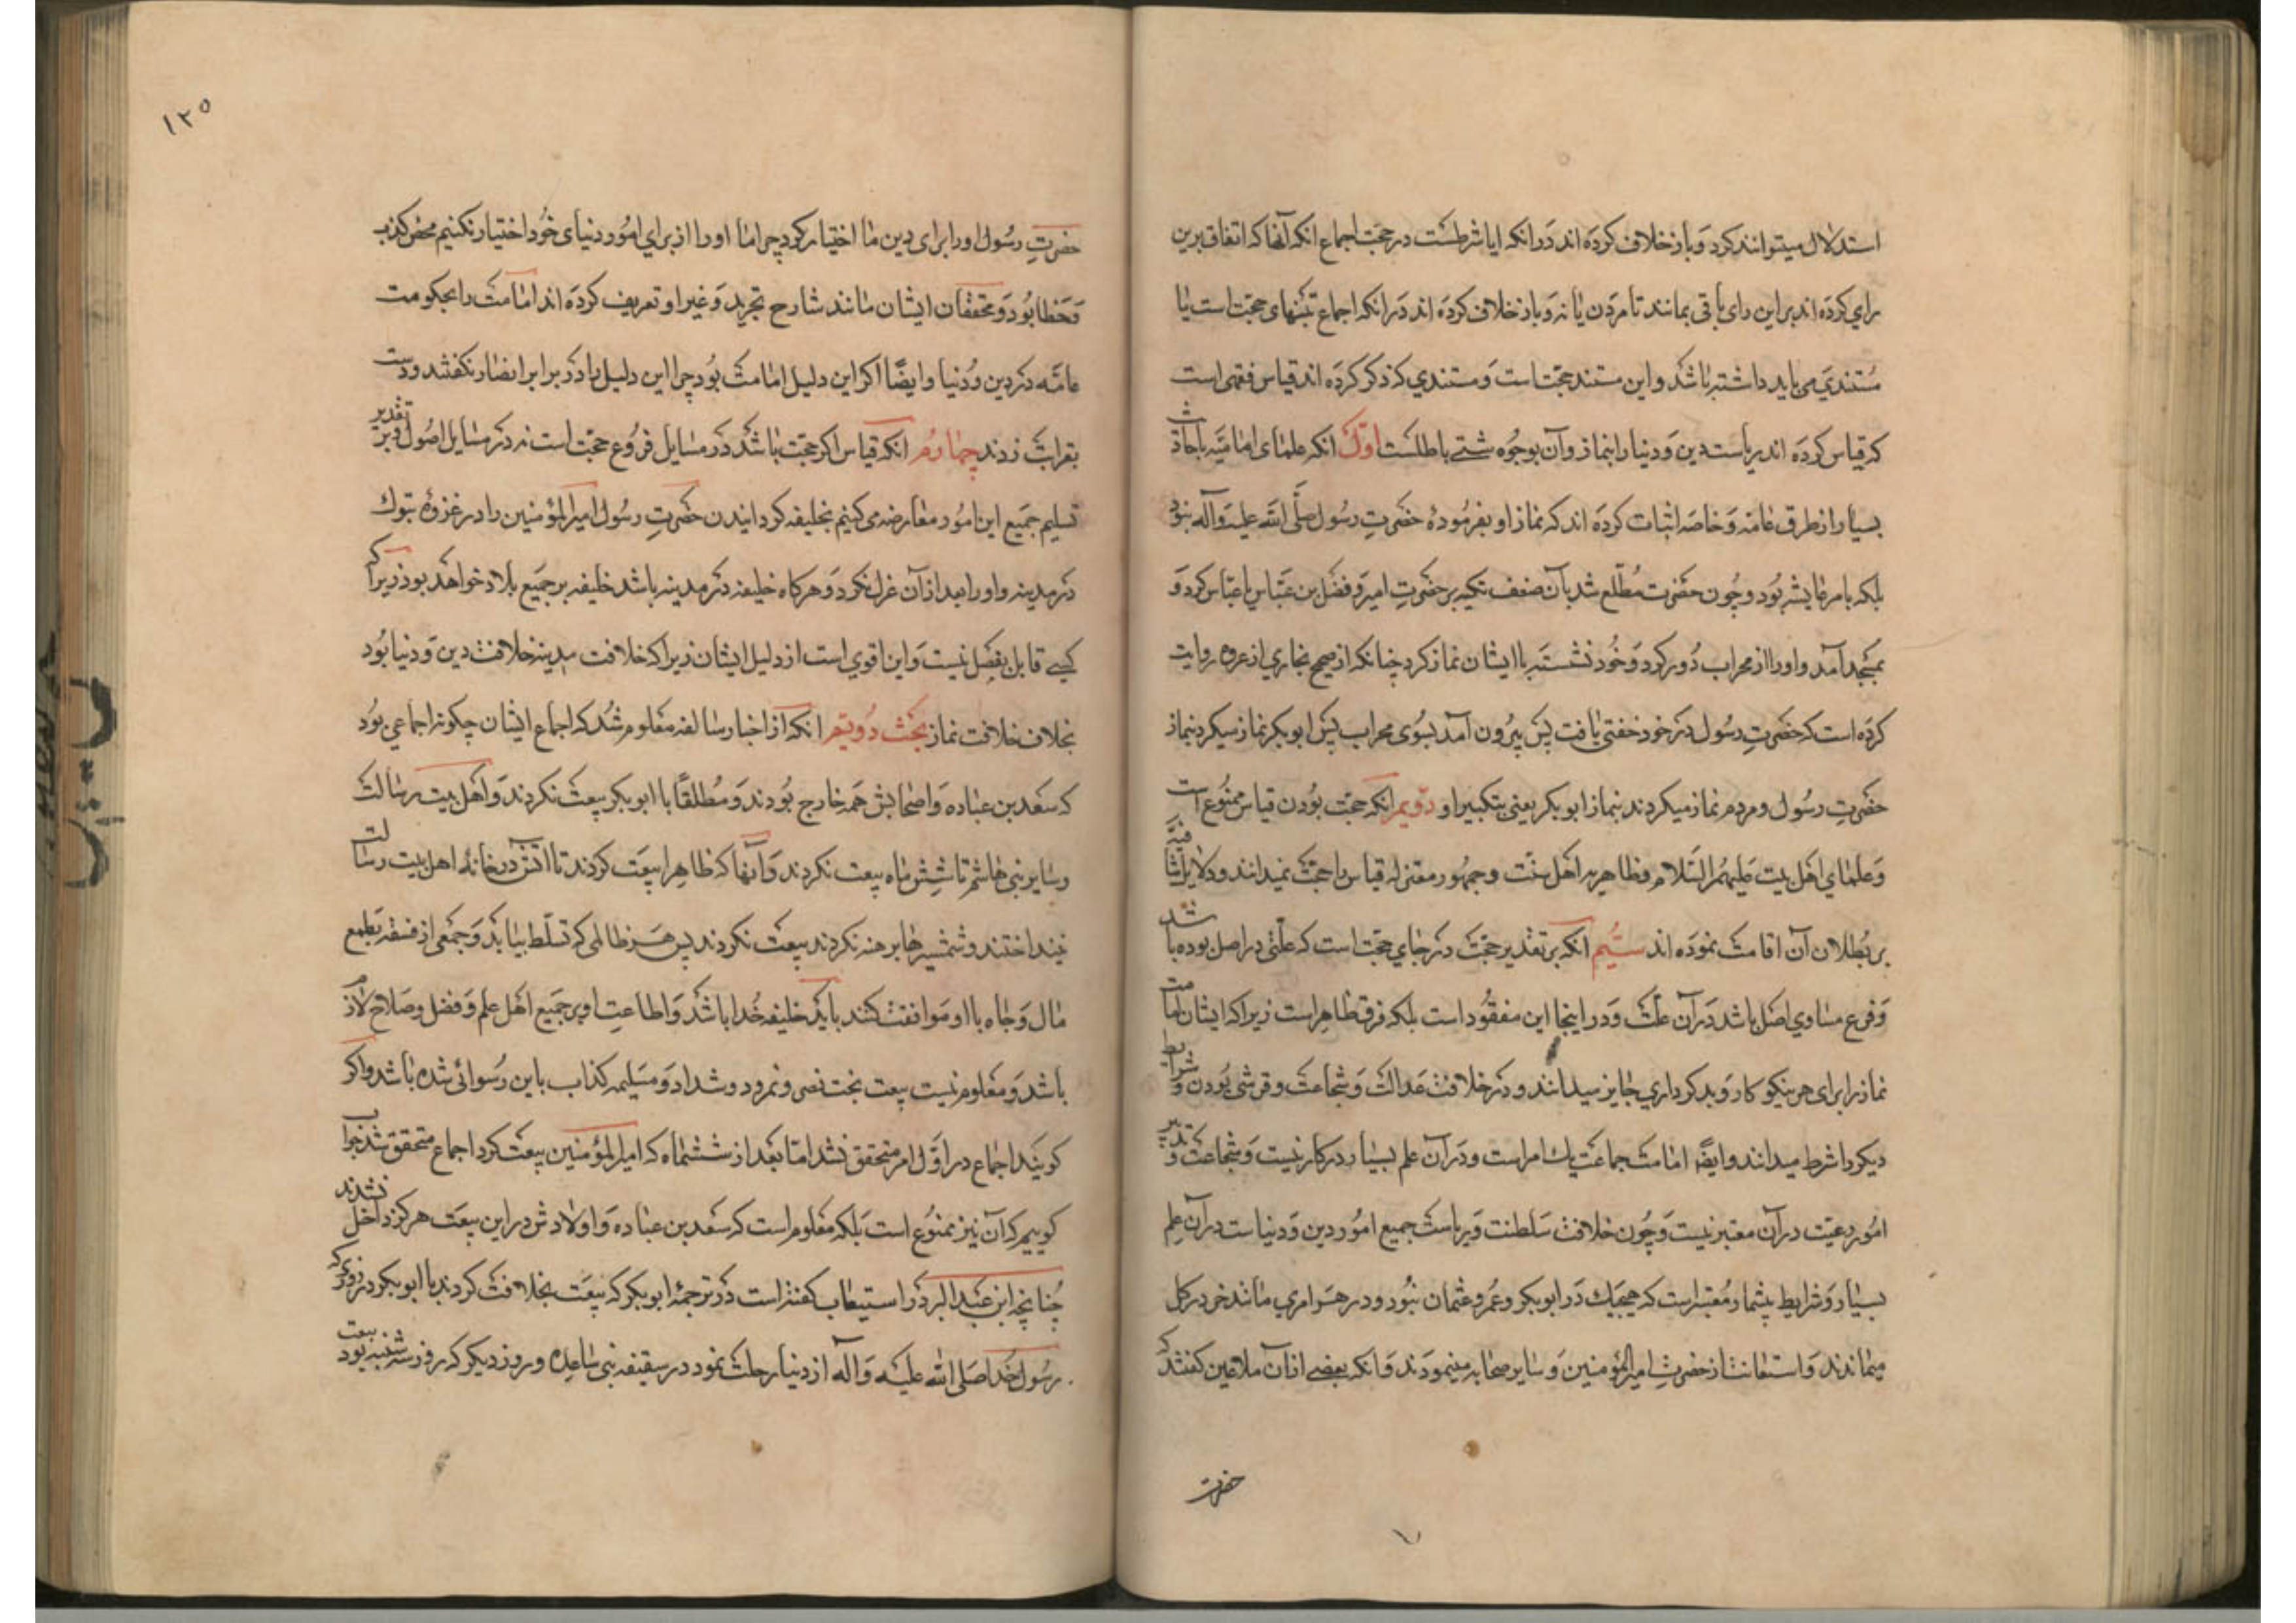 استدلال میتوانند کرد و باز خلاف کرده اند در انکه ایا شرطست در حجت اجماع انکه آنها که اتفاق برین
رای کرده اند براین رای باقی بمانند تا مردن یا نه و باز خلاف کرده اند در انکه اجماع بتنهای حجت است یا
مستندی می باید داشته باشد و این مستند حجت است و مستندی که ذکر کرده اند قیاس فقهی است
که قیاس کرده اند ریاست دین و دنیا را بنماز و آن بوجوه شتے باطلست اوّل انکه علمای امامیه باحادیث
بسیار از طرق عامه و خاصه اثبات کرده اند که نماز او بفرمودهٔ حضرتِ رسول صلّی الله علیه وآله نبود
بلکه بامر عایشه بود و چون حضرت مطّلع شد بآن ضعف تکیه بر حضرتِ امیر و فضل بن عبّاس یا عبّاس کرد و
بمسجد آمد و او را از محراب دور کرد و خود نشسته باایشان نماز کرد چنانکه از صحیح بخاری از عروه روایت
کرده است که حضرتِ رسول در خود خفتی یافت پس بیرون آمد بسوی محراب پس ابوبکر نماز میکرد بنماز
حضرتِ رسول و مردم نماز میکردند بنماز ابوبکر یعنی بتکبیر او دویم انکه حجت بودن قیاس ممنوع است
و علمای اهل بیت علیهم السّلام و ظاهریه اهل سنّت و جمهور معتزله قیاس را حجت نمیدانند و دلایل شافیه
بر بطلان آن اقامت نموده اند سیُم انکه بر تقدیر حجت در جای حجت است که علتی در اصل بوده باشد
و فرع مساوی اصل باشد در آن علّت و در اینجا این مفقود است بلکه فرق ظاهر است زیرا که ایشان امامت
نماز را برای هر نیکوکار و بدکرداری جایز میدانند و در خلافت عدالت و شجاعت و قرشی بودن و شرایط
دیگر را شرط میدانند و ایضًا امامت جماعت یك امر است و در آن علم بسیار در کار نیست و شجاعت و تدبیر
امور رعیّت در آن معتبر نیست و چون خلافت سلطنت و ریاست جمیع امور دین و دنیاست در آن علم
بسیار و شرایط بیشمار معتبر است که هیچیك در ابوبکر و عمر و عثمان نبود و در هر امری مانند خر در گل
میماندند و استعانت از حضرتِ امیرالمؤمنین و سایر صحابه مینمودند و انکه بعضے از آن ملاعین گفتند که
حضرت
۱۲۵
حضرتِ رسول او را برای دین ما اختیار کرد چرا ما او را از برای امور دنیای خود اختیار نکنیم محض کذب
و خطا بود و محققان ایشان مانند شارح تجرید و غیر او تعریف کرده اند امامت را بحکومت
عامّه در دین و دنیا و ایضًا اگر این دلیل امامت بود چرا این دلیل را در برابر انصار نگفتند و دست
بقرابت زدند چهارُم انکه قیاس اگر حجت باشد در مسایل فروع حجت است نه در مسایل اصول و بر تقدیر
تسلیم جمیع این امور معارضه می کنیم بخلیفه گردانیدن حضرتِ رسول امیرالمؤمنین را در غزوهٔ تبوك
در مدینه و او را بعد از آن عزل نکرد و هرگاه خلیفه در مدینه باشد خلیفه بر جمیع بلاد خواهد بود زیرا که
کسے قایل بفصل نیست و این اقوی است از دلیل ایشان زیرا که خلافت مدینه خلافت دین و دنیا بود
بخلاف خلافت نماز بحث دویّم انکه از اخبار سالفه معلوم شد که اجماع ایشان چگونه اجماعی بود
که سعد بن عباده و اصحابش همه خارج بودند و مطلقًا با ابوبکر بیعت نکردند و اهل بیت رسالت
و سایر بنی هاشم تا شش ماه بیعت نکردند و آنها که ظاهرا بیعت کردند تا اتش در خانهٔ اهل بیت رسالت
نینداختند و شمشیرها برهنه نکردند بیعت نکردند پس هر ظالمی که تسلّط بیابد و جمعی از فسقه بطمع
مال و جاه با او موافقت کنند باید خلیفهٔ خدا باشد و اطاعتِ او بر جمیع اهل علم و فضل و صلاح لازم
باشد و معلوم نیست بیعت بخت نصر و نمرود و شداد و مسیلمه کذاب باین رسوائی شده باشد و اگر
گویند اجماع در اوّل امر متحقق نشد امّا بعد از ششماه که امیرالمؤمنین بیعت کرد اجماع متحقق شد جواب
گوییم که آن نیز ممنوع است بلکه معلوم است که سعد بن عباده و اولادش در این بیعت هرگز داخل نشدند
چنانچه ابن عبد البر در استیعاب گفته است در ترجمهٔ ابوبکر که بیعت بخلافت کردند با ابوبکر در روزی که
رسول خدا صلی الله علیه و آله از دنیا رحلت نمود در سقیفه بنی ساعده و روز دیگر که روز سه شنبه بود بیعت